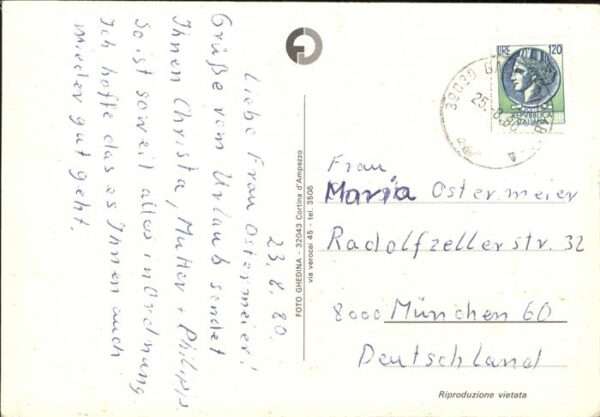 23.8.80.
Liebe Frau Ostermeier!
Grüße vom Urlaub sendet
Ihnen Christa, Mutter + Philipp.
So ist soweit alles in Ordnung
Ich hoffe das es Ihnen auch
wieder gut geht.
FOTO GHEDINA - 32043 Cortina d'Ampezzo
via verocai 45 - tel. 3506
LIRE 120
REPUBBLICA
ITALIANA
39030
25.-8.80
Frau
Maria Ostermeier
Radolfzellerstr. 32
8000 München 60
Deutschland
Riproduzione vietata